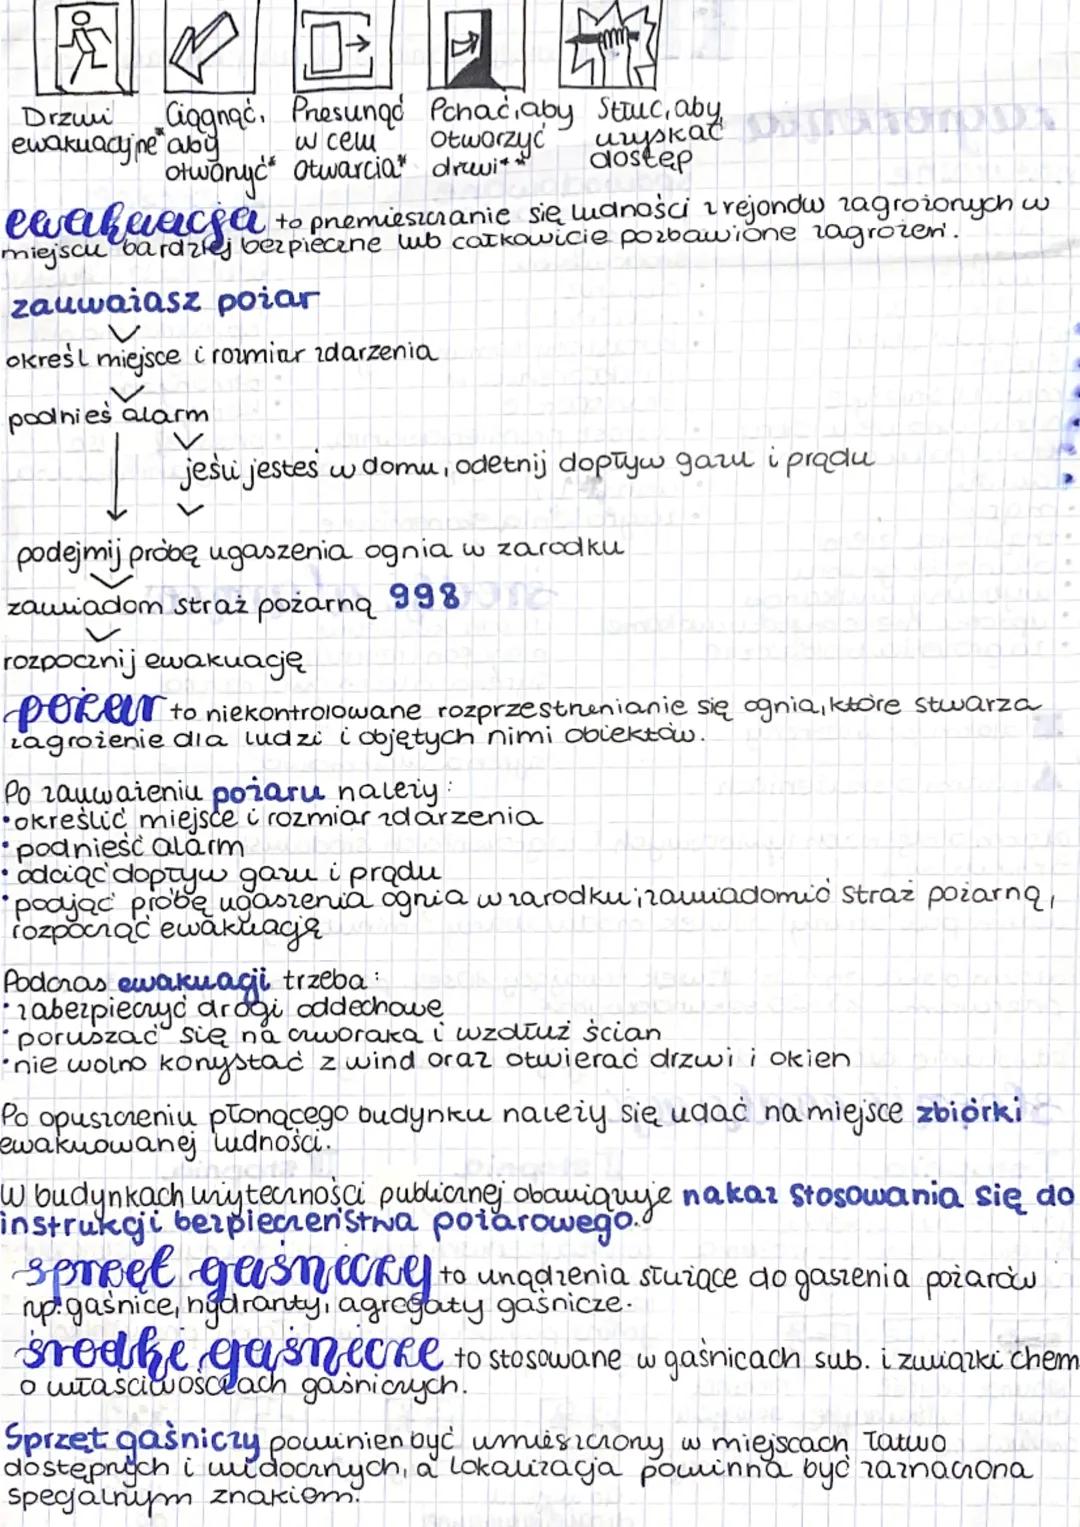 Drzwi ewakuacyjne*
Ciągnąć, aby otworzyć*
Przesunąć w celu otwarcia*
Pchać, aby otworzyć drzwi**
Stłuc, aby uzyskać dostęp
ewakuacja to przemieszczanie się ludności z rejonów zagrożonych w
miejscu bardziej bezpieczne lub całkowicie pozbawione zagrożeń.
zauważasz pożar
określ miejsce i rozmiar zdarzenia
podnieś alarm
jeśli jesteś w domu, odetnij dopływ gazu i prądu
podejmij próbę ugaszenia ognia w zarodku
zawiadom straż pożarną 998
rozpocznij ewakuację
pożar to niekontrolowane rozprzestrzenianie się ognia, które stwarza
zagrożenie dla ludzi i objętych nimi obiektów.
Po zauważeniu pożaru należy:
•określić miejsce i rozmiar zdarzenia
•podnieść alarm
•odciąć dopływ gazu i prądu
•podjąć próbę ugaszenia ognia w zarodku; zawiadomić straż pożarną,
rozpocząć ewakuację
Podczas ewakuacji trzeba:
•zabezpieczyć drogi oddechowe
•poruszać się na czworaka i wzdłuż ścian
•nie wolno korzystać z wind oraz otwierać drzwi i okien
Po opuszczeniu płonącego budynku należy się udać na miejsce zbiórki
ewakuowanej ludności.
W budynkach użyteczności publicznej obowiązuje nakaz stosowania się do
instrukcji bezpieczeństwa pożarowego.
sprzęt gaśniczy to urządzenia służące do gaszenia pożarów
np. gaśnice, hydranty, agregaty gaśnicze.
środki gaśnicze to stosowane w gaśnicach sub. i związki chem
o właściwościach gaśniczych.
Sprzęt gaśniczy powinien być umieszczony w miejscach łatwo
dostępnych i widocznych, a lokalizacja powinna być zaznaczona
specjalnym znakiem.